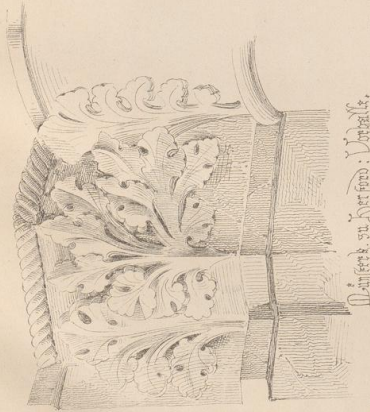 Münster zu Herford: Vorhalle.